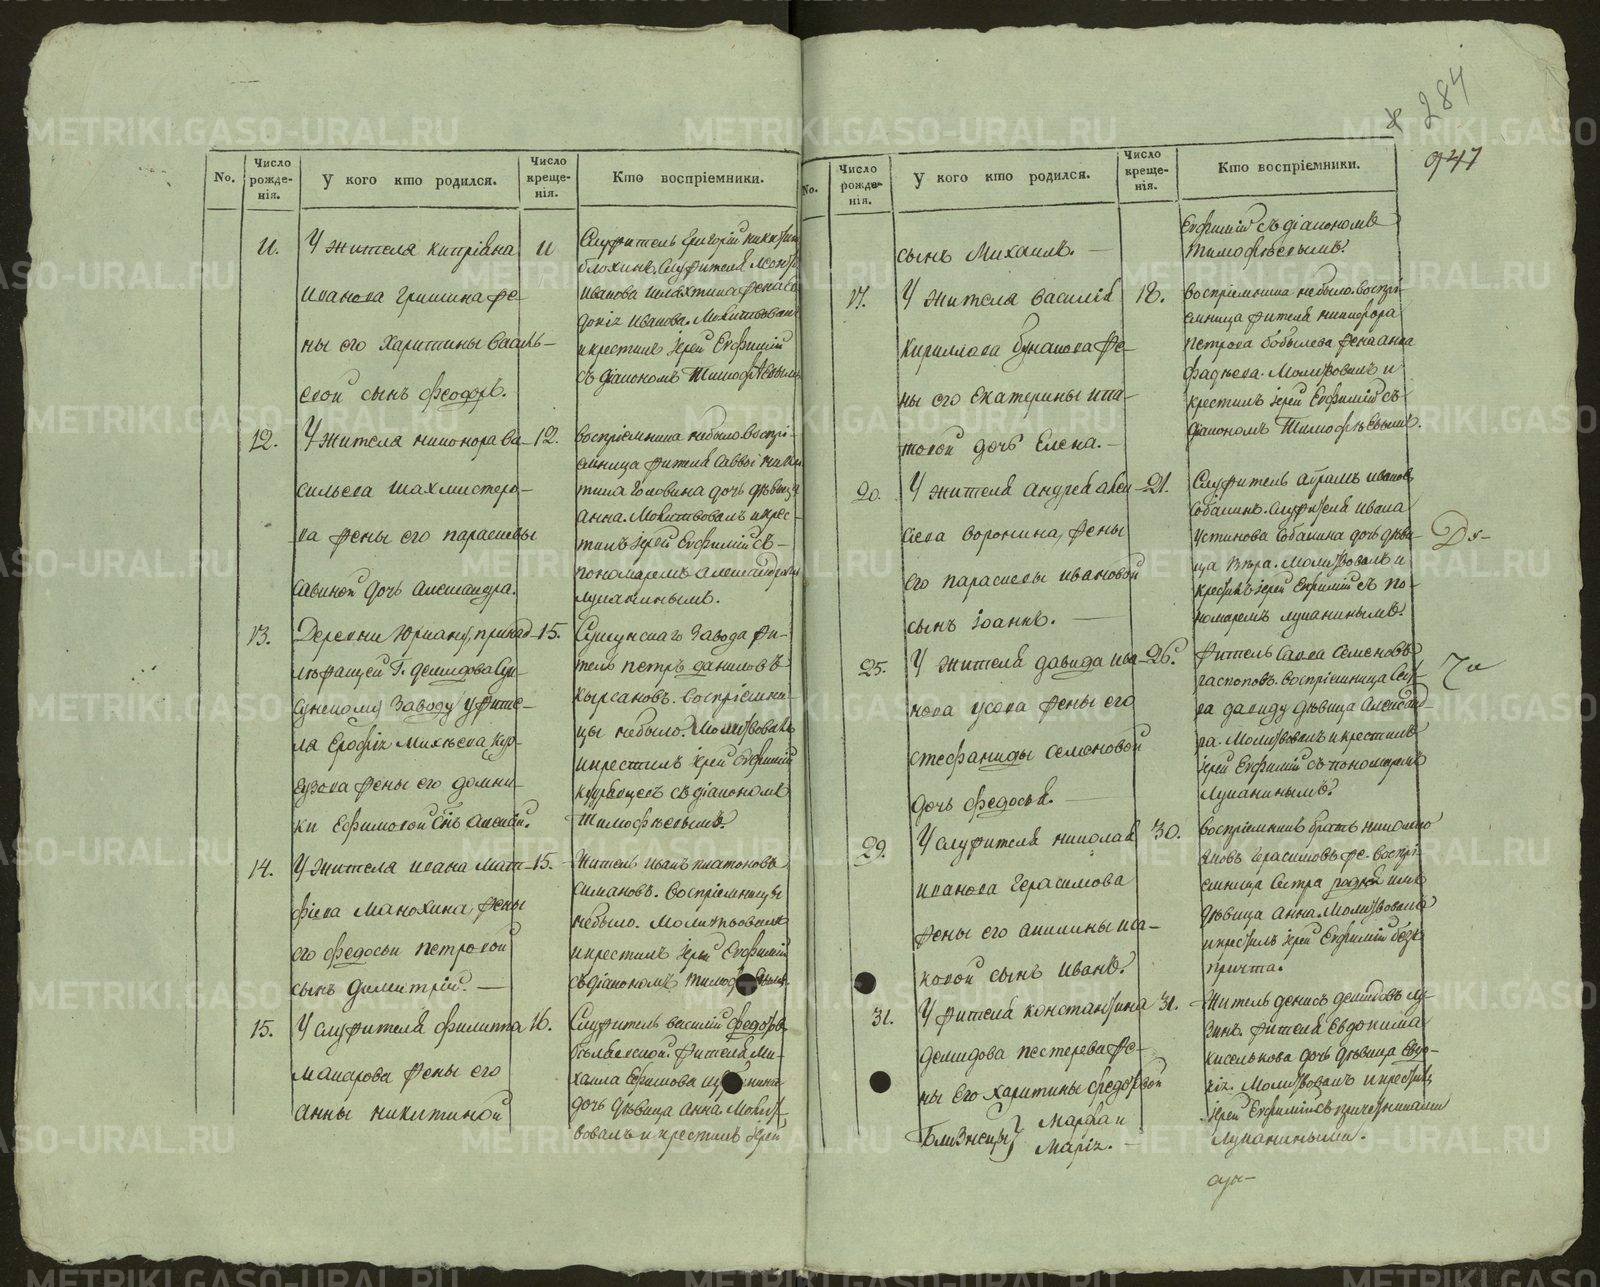 284
947
No.
Число рожде- нія.
У кого кто родился.
Число креще- нія.
Кто воспріемники.
11.
У жителя Кипріяна
Иванова Гришина же-
ны его Харитины Василь-
евой сынъ Феодоръ.
11
Служитель Григорій
Блохинъ. Служителя
Иванова жена Ев-
докія Иванова. Молитвовалъ
и крестилъ Іерей Евфимій
съ діакономъ Тимофѣевымъ
12.
У жителя Никонора Ва-
сильева Шахмистеро-
ва жены его Парасковьи
Савиной дочь Александра.
12.
Воспріемника небыло Воспрі-
емница жителя Саввы
Головина дочь дѣвица
Анна. Молитвовалъ и крес-
тилъ Іерей Евфимій съ
пономаремъ Александромъ
Лупанинымъ.
13.
Деревни Юрианы, принад-
лѣжащей Г. Демидова Су-
сунскому Заводу у жите-
ля Ерофія Михѣева
жены его Домни-
ки Ефимовой сынъ Алексій.
15.
Завода жи-
тель Петръ Даниловъ
Кырсановъ. Воспріемни-
цы небыло. Молитвовалъ
и крестилъ Іерей Евфимій
съ діакономъ
Тимофѣевымъ.
14.
У жителя Ивана Мат-
фіева Манохина, жены
его Федосьи Петровой
сынъ Димитрій.
15.
Житель Иванъ Платоновъ
Симановъ. Воспріемницы
небыло. Молитвовалъ
и крестилъ Іерей Евфимій
съ діакономъ
15.
У служителя Филиппа
Макарова жены его
Анны Никитиной
16.
Служитель Василій Федоровъ
жителя Ми-
хаила Ефимова
дочь дѣвица Анна. Молит-
вовалъ и крестилъ Іерей
No.
Число рожде- нія.
У кого кто родился.
Число креще- нія.
Кто воспріемники.
сынъ Михаилъ.
Евфимій съ діакономъ
Тимофѣевымъ.
17.
У жителя Василія
Кириллова Бунакова же-
ны его Екатерины Ипа-
товой дочь Елена.
18.
Воспріемника небыло. Воспрі-
емница жителя Никифора
Петрова Бобылева жена Анна
Фадѣева. Молитвовалъ и
крестилъ Іерей Евфимій съ
діакономъ Тимофѣевымъ.
20.
У жителя Андрея Алек-
сіева Воронина, жены
его Парасковы Ивановой
сынъ Іоаннъ.
21.
Служитель Абрамъ Ивановъ
Собакинъ. Служителя Ивана
Устинова Собакина дочь дѣви-
ца Вѣра. Молитвовалъ и
крестилъ Іерей Евфимій съ по-
номаремъ Лупанинымъ.
25.
У жителя Давида Ива-
нова Усова жены его
Стефаниды Семеновой
дочь Федосья.
26.
Житель Савва Семеновъ
Распоповъ. Воспріемница
Давиду дѣвица Александ-
ра. Молитвовалъ и крестилъ
Іерей Евфимій съ пономаремъ
Лупанинымъ.
29.
У служителя Николая
Иванова Герасимова
жены его Акилины Иса-
ковой сынъ Иванъ.
30.
Воспріемникъ братъ Николаю
Герасимовъ же. Воспрі-
емница сестра родная имъ
дѣвица Анна. Молитвовалъ
и крестилъ Іерей Евфимій безъ
причта.
31.
У жителя Константина
Демидова Пестерева же-
ны его Харитины Федоровой
Близнецы Марфа и
Марія.
31.
Житель Денисъ Демидовъ Лу-
зинъ. Жителя Евдокима
Киселькова дочь дѣвица Евдо-
кія. Молитвовалъ и крестилъ
Іерей Евфимій съ причетниками
Лупаниными.